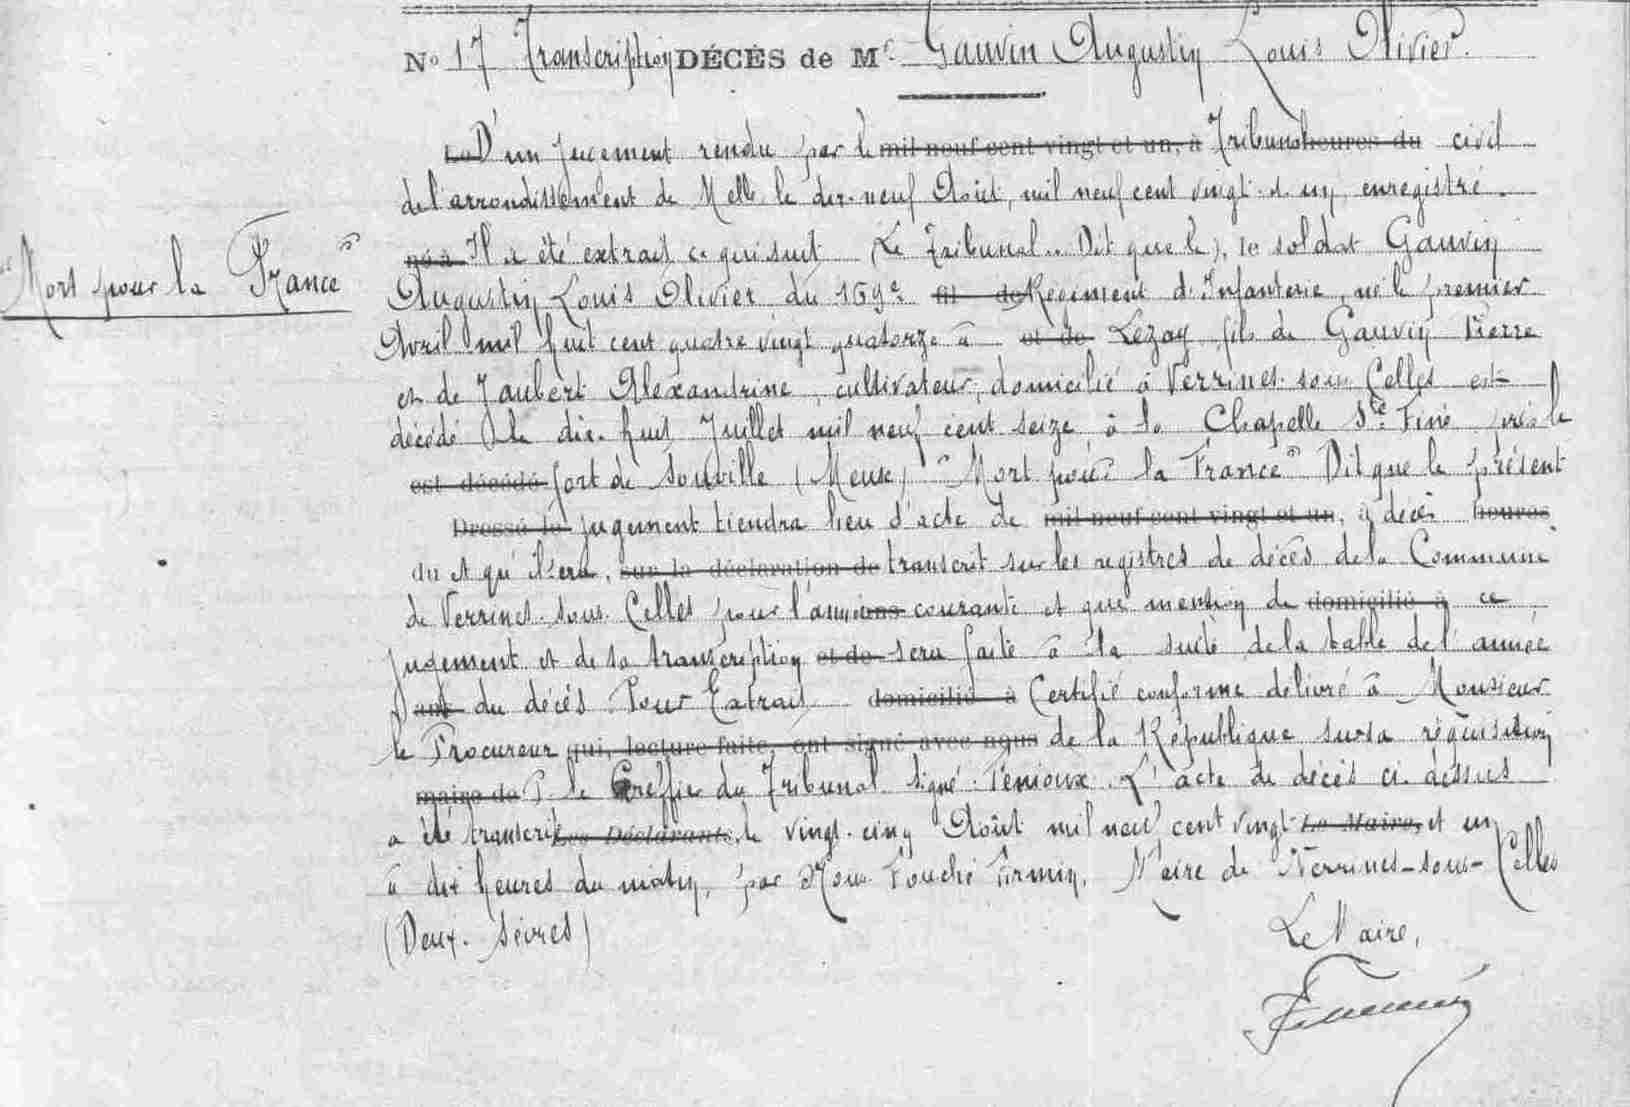 No 17 Transcription DÉCÈS de Mr Gauvin Augustin Louis Olivier.
Le D'un jugement rendu par le mil neuf cent vingt et un, à Tribunal heures du civil
de l'arrondissement de Melle le dix-neuf Août, mil neuf cent vingt et un, enregistré.
né à Il a été extrait ce qui suit (Le Tribunal.. Dit que le), le soldat Gauvin
"Mort pour la France"
Augustin Louis Olivier du 169e fil de Régiment d'Infanterie, né le premier
Avril mil huit cent quatre vingt quatorze à et de Lezay fils de Gauvin Pierre
et de Jaubert Alexandrine, cultivateur, domicilié à Verrines-sous-Celles est
décédé le dix-huit Juillet mil neuf cent seize à la Chapelle Ste Fine près le
est décédé fort de Souville (Meuse) "Mort pour la France" Dit que le présent
Dressé le jugement tiendra lieu d'acte de mil neuf cent vingt et un, à décès heures
du et qu'il sera, sur la déclaration de transcrit sur les registres de décès de la Commune
de Verrines-sous-Celles pour l'année ans courante et que mention de domicilié à ce
jugement et de sa transcription et de sera faite à la suite de la table de l'année
ans du décès Pour Extrait domicilié à Certifié conforme délivré à Monsieur
le Procureur qui, lecture faite, ont signé avec nous de la République sur sa réquisition
maire de P. le Greffier du Tribunal signé: Penioux. L'acte de décès ci-dessus
a été transcrit Les Déclarants, le vingt-cinq Août mil neuf cent vingt Le Maire, et un
à dix heures du matin, par Nous Fouché Firmin, Maire de Verrines-sous-Celles
(Deux-Sèvres)
Le Maire,